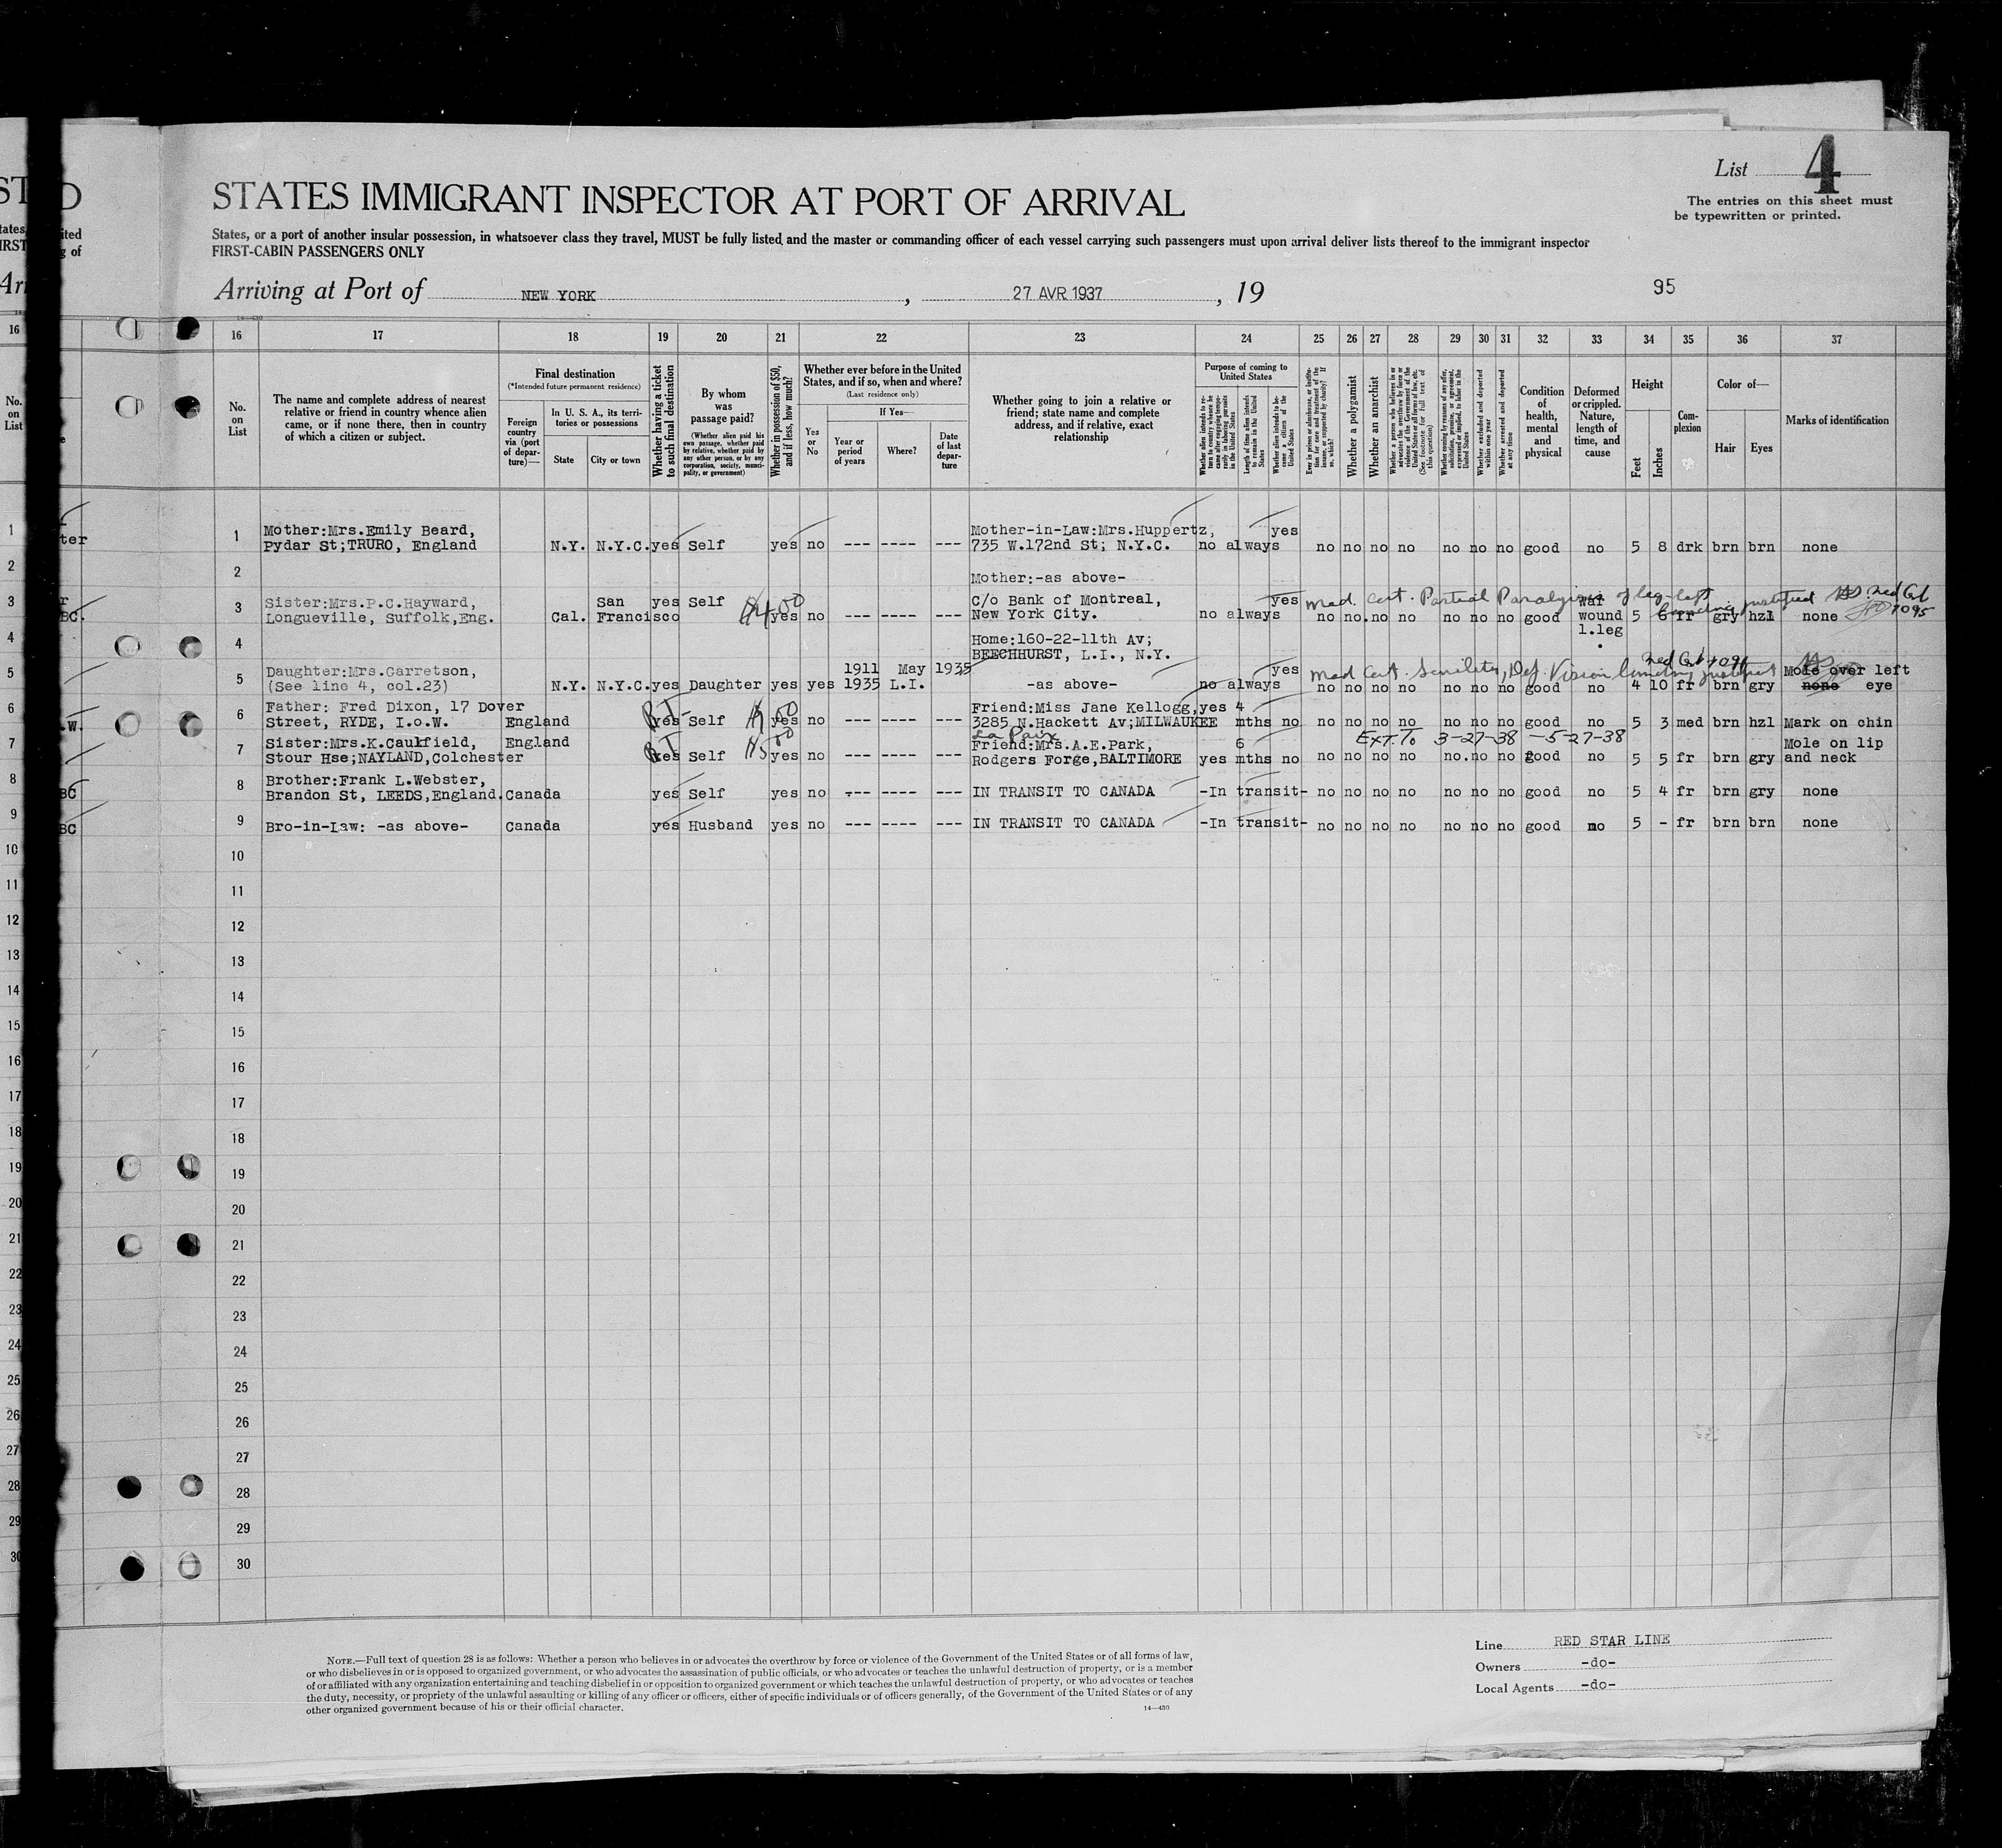 List 4
The entries on this sheet must
be typewritten or printed.
STATES IMMIGRANT INSPECTOR AT PORT OF ARRIVAL
States, or a port of another insular possession, in whatsoever class they travel, MUST be fully listed and the master or commanding officer of each vessel carrying such passengers must upon arrival deliver lists thereof to the immigrant inspector
FIRST-CABIN PASSENGERS ONLY
Arriving at Port of NEW YORK, 27 AVR 1937, 19
95
16 17 18 19 20 21 22 23 24 25 26 27 28 29 30 31 32 33 34 35 36 37
No. on List
The name and complete address of nearest
relative or friend in country whence alien
came, or if none there, then in country
of which a citizen or subject.
Final destination
(*Intended future permanent residence)
Foreign country via (port of departure)—
In U. S. A., its territories or possessions
State
City or town
Whether having a ticket to such final destination
By whom was passage paid?
(Whether alien paid his own passage, whether paid by relative, whether paid by any other person, or by any corporation, society, municipality, or government)
Whether in possession of $50, and if less, how much?
Whether ever before in the United
States, and if so, when and where?
(Last residence only)
If Yes—
Yes or No
Year or period of years
Where?
Date of last departure
Whether going to join a relative or
friend; state name and complete
address, and if relative, exact
relationship
Purpose of coming to United States
Whether alien intends to return to country whence he came after engaging temporarily in laboring pursuits in the United States
Length of time alien intends to remain in the United States
Whether alien intends to become a citizen of the United States
Ever in prison or almshouse, or institution for care and treatment of the insane, or supported by charity? If so, which?
Whether a polygamist
Whether an anarchist
Whether coming by reasons of any offer, solicitation, promise, or agreement, expressed or implied, to labor in the United States
Whether excluded and deported within one year
Whether arrested and deported at any time
Condition of health, mental and physical
Deformed or crippled. Nature, length of time, and cause
Height
Feet
Inches
Complexion
Color of—
Hair
Eyes
Marks of identification
1 Mother:Mrs.Emily Beard, Mother-in-Law:Mrs.Huppertz, yes
Pydar St;TRURO, England N.Y. N.Y.C. yes Self yes no --- ---- --- 735 W.172nd St; N.Y.C. no always no no no no no no no good no 5 8 drk brn brn none
2
Mother:-as above-
3 Sister:Mrs.P.C.Hayward, San yes Self C/o Bank of Montreal, yes Med. Cert. Partial Paralysis of leg-left war
Longueville, Suffolk,Eng. Cal. Francisco yes no --- ---- --- New York City. no always no no. no no no no no good wound 5 6 fr gry hzl none
l.leg
4 Home:160-22-11th Av;
BEECHHURST, L.I., N.Y.
5 Daughter:Mrs.Garretson, 1911 May 1935 yes Med Cert. Senility, Def. Vision Mole over left
(See line 4, col.23) N.Y. N.Y.C. yes Daughter yes yes 1935 L.I. -as above- no always no no no no no no no good no 4 10 fr brn gry none eye
6 Father: Fred Dixon, 17 Dover Friend:Miss Jane Kellogg, yes 4
Street, RYDE, I.o.W. England yes Self yes no --- ---- --- 3285 N.Hackett Av;MILWAUKEE mths no no no no no no no no good no 5 3 med brn hzl Mark on chin
La Paix
Ext. To 3-27-38 - 5-27-38
7 Sister:Mrs.K.Caulkfield, England Friend:Mrs.A.E.Park, 6 Mole on lip
Stour Hse;NAYLAND,Colchester yes Self yes no --- ---- --- Rodgers Forge,BALTIMORE yes mths no no no no no no. no no good no 5 5 fr brn gry and neck
8 Brother:Frank L.Webster,
Brandon St, LEEDS,England. Canada yes Self yes no --- ---- --- IN TRANSIT TO CANADA -In transit- no no no no no no no good no 5 4 fr brn gry none
9 Bro-in-Law: -as above- Canada yes Husband yes no --- ---- --- IN TRANSIT TO CANADA -In transit- no no no no no no no good no 5 - fr brn brn none
10
11
12
13
14
15
16
17
18
19
20
21
22
23
24
25
26
27
28
29
30
NOTE.—Full text of question 28 is as follows: Whether a person who believes in or advocates the overthrow by force or violence of the Government of the United States or of all forms of law,
or who disbelieves in or is opposed to organized government, or who advocates the assassination of public officials, or who advocates or teaches the unlawful destruction of property, or is a member
of or affiliated with any organization entertaining and teaching disbelief in or opposition to organized government or which teaches the unlawful destruction of property, or who advocates or teaches
the duty, necessity, or propriety of the unlawful assaulting or killing of any officer or officers, either of specific individuals or of officers generally, of the Government of the United States or of any
other organized government because of his or their official character.
14—430
Line RED STAR LINE
Owners -do-
Local Agents -do-